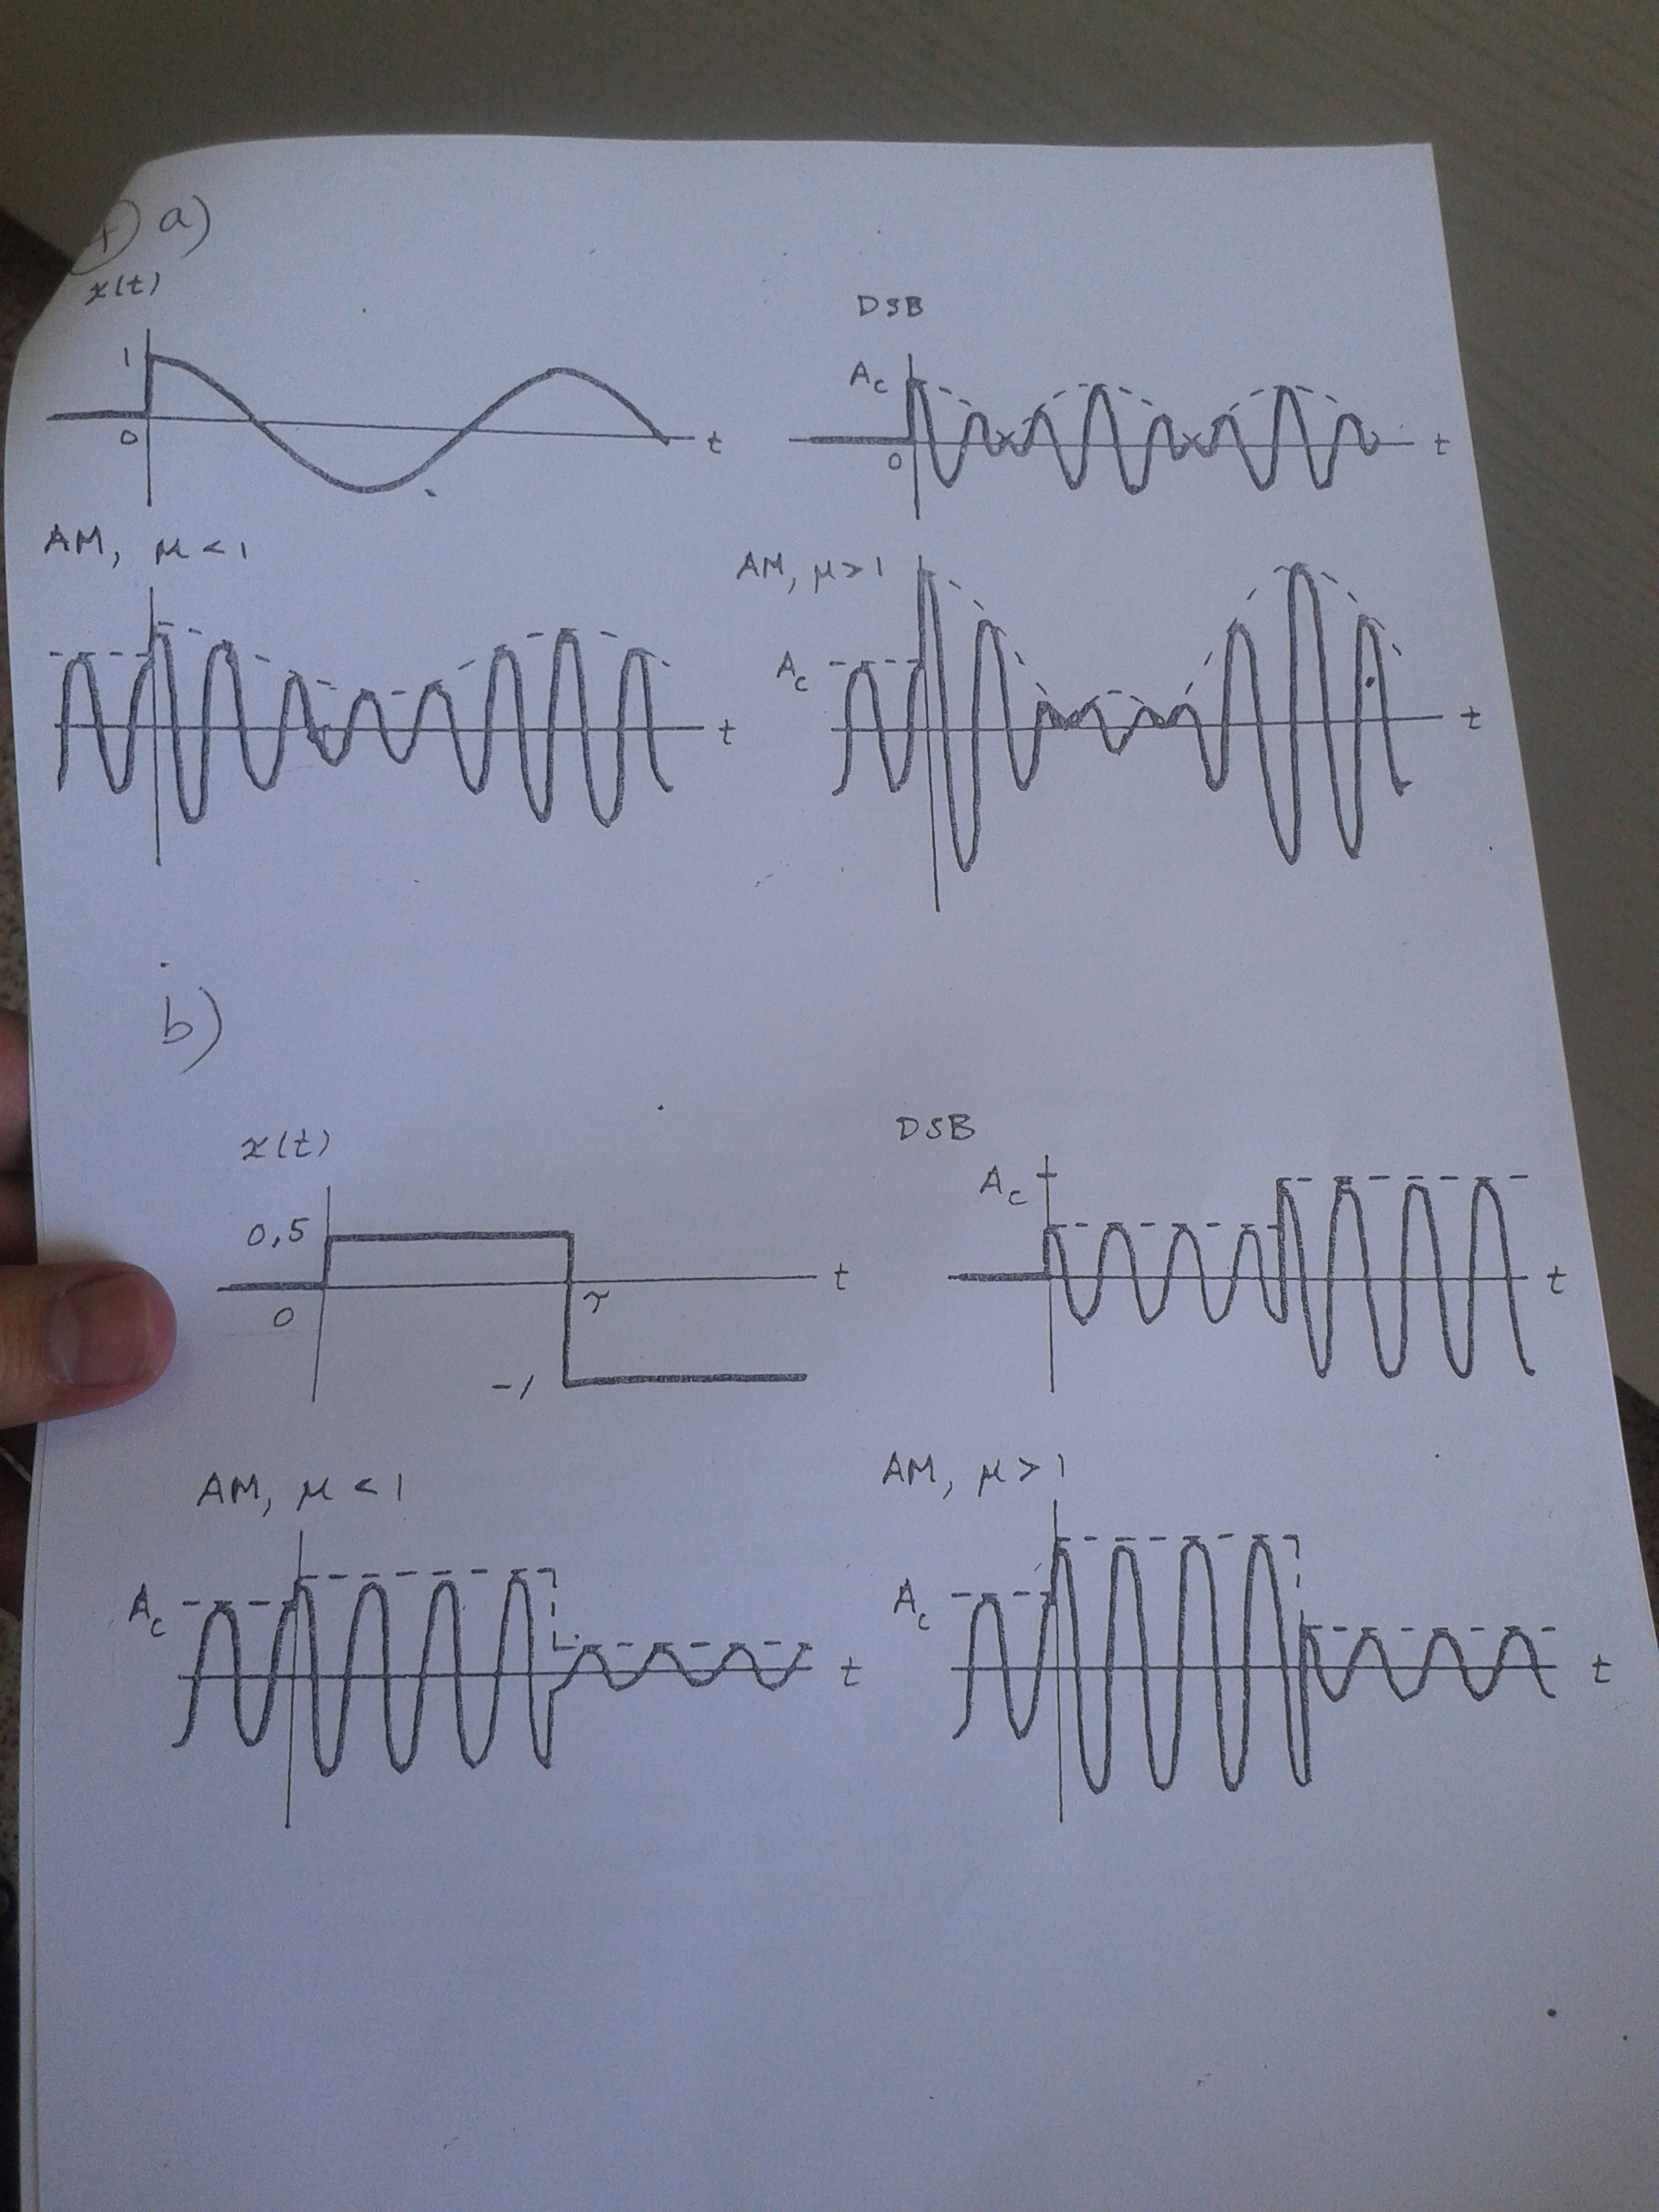 a)
x(t)
1
0
t
DSB
A_c
0
t
AM, μ < 1
t
AM, μ > 1
A_c
t
b)
x(t)
0,5
0
τ
-1
t
DSB
A_c
t
AM, μ < 1
A_c
t
AM, μ > 1
A_c
t